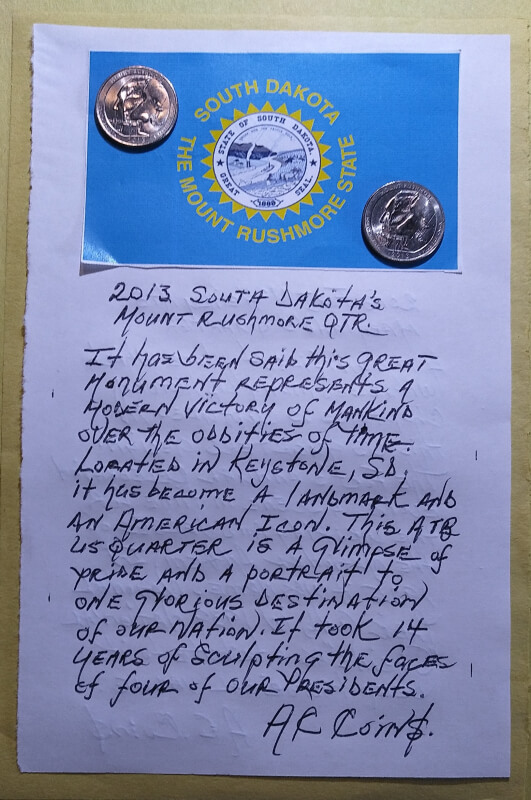 SOUTH DAKOTA
STATE OF SOUTH DAKOTA
GREAT SEAL
1889
THE MOUNT RUSHMORE STATE
2013 SOUTH DAKOTA'S
MOUNT RUSHMORE QTR.
It has been said this great
Monument represents a
Modern Victory of Mankind
over the oddities of time.
Located in Keystone, SD.
it has become a landmark and
an American Icon. This ATB
US Quarter is a glimpse of
pride and a portrait to
one glorious destination
of our Nation. It took 14
years of sculpting the faces
of four of our Presidents.
AC Coin$.